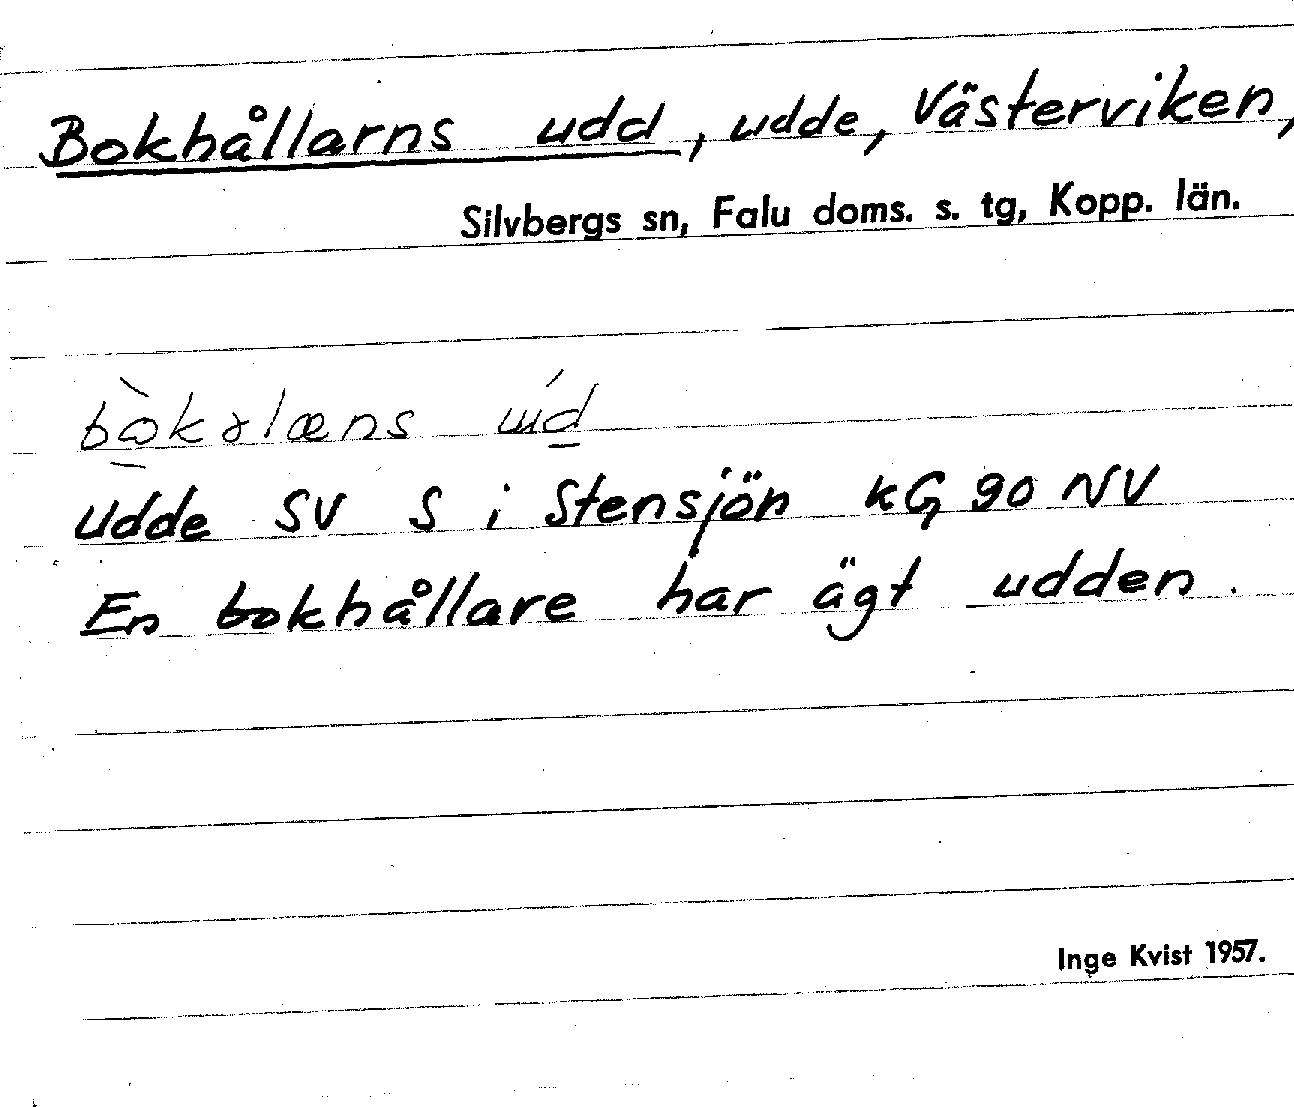 Bokhållarns udd, udde, Västerviken,
Silvbergs sn, Falu doms. s. tg, Kopp. län.
Udde SV S i Stensjön kG 90 NV
En bokhållare har ägt udden.
Inge Kvist 1957.